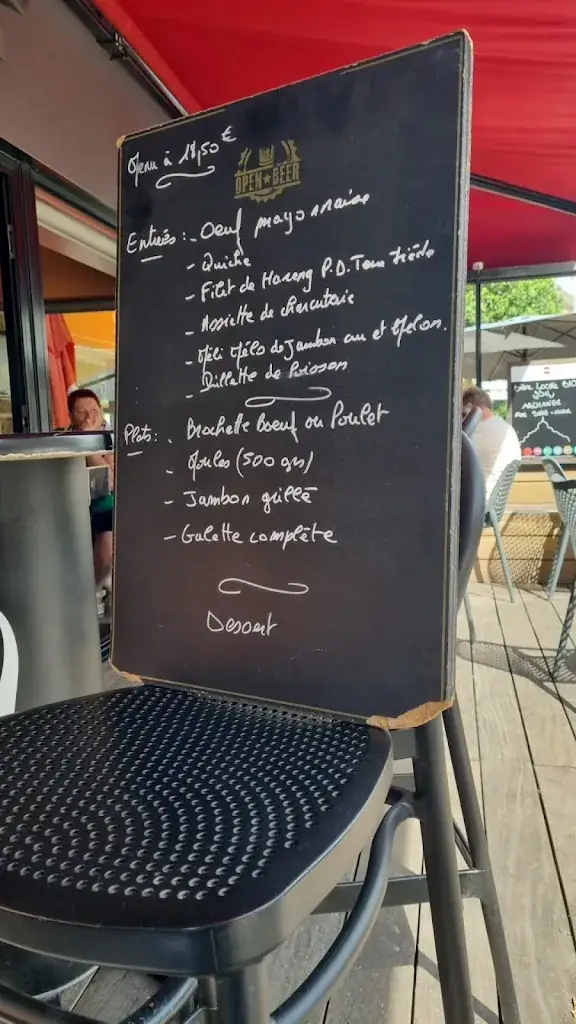 Menu à 18,50€
OPEN★BEER
Entrées: - Oeuf mayonnaise
- Quiche
- Filet de Hareng P.D.Terre tiède
- Assiette de charcuterie
- Méli Mélo de Jambon cru et Melon.
- Rillette de Poisson
Plats: - Brochette Boeuf ou Poulet
- Moules (500 grs)
- Jambon grillé
- Galette complète
Dessert
Bière Locale BIO